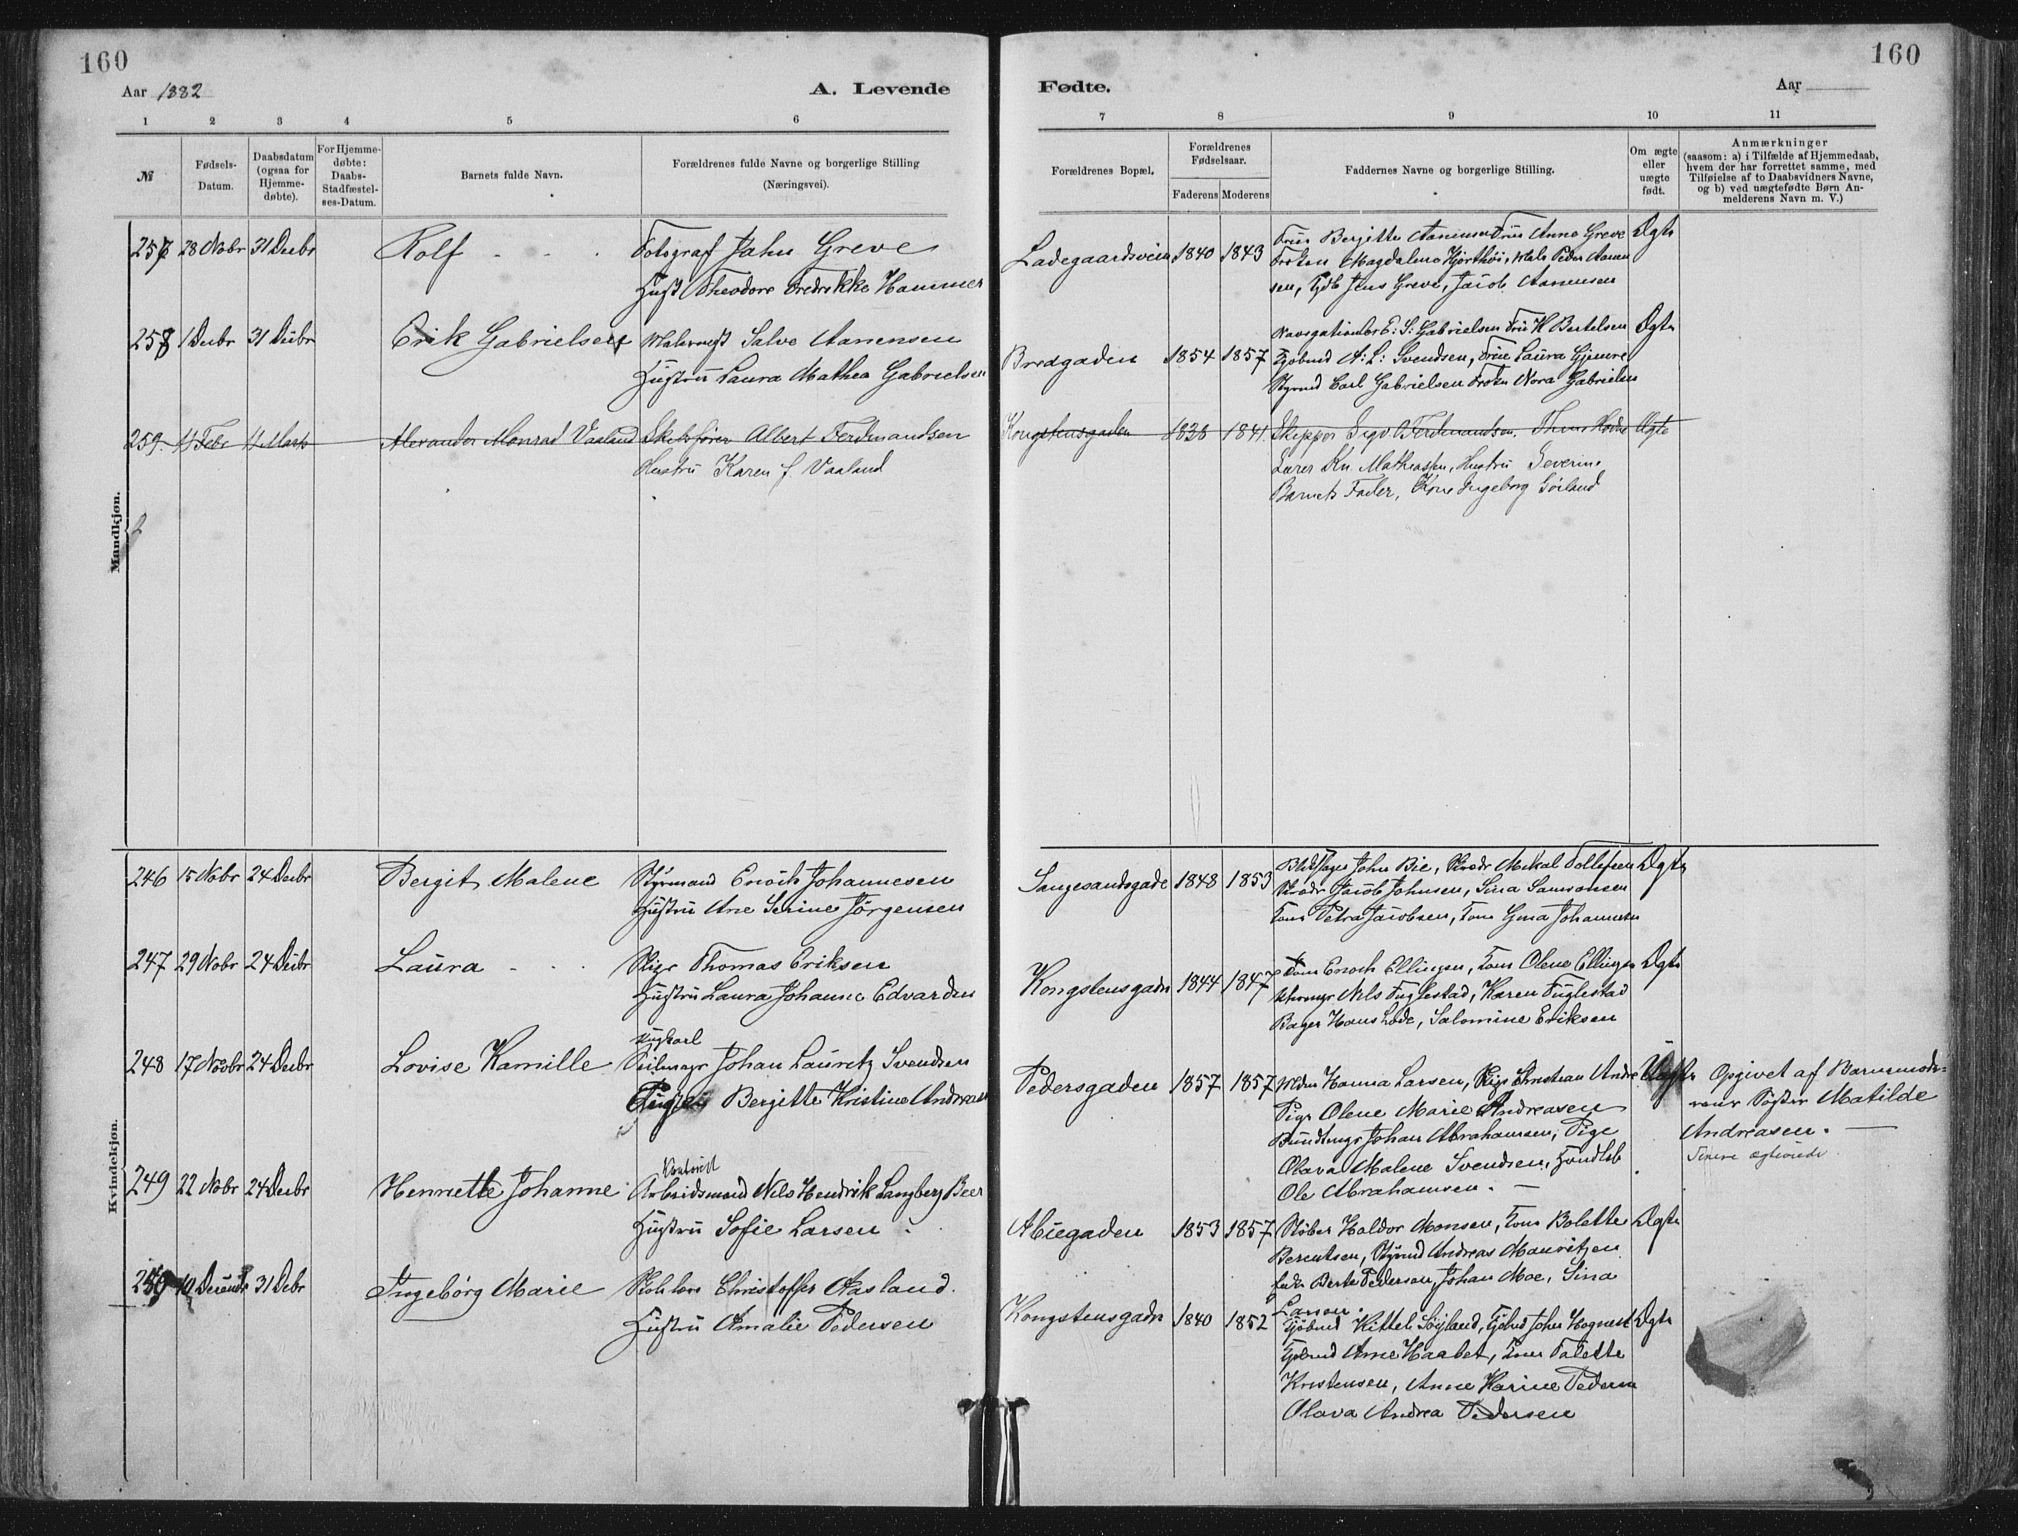 160
160
Aar 1882
A. Levende
Fødte.
Aar
1 2 3 4 5 6
7 8 9 10 11
№
Fødsels-Datum.
Daabsdatum (ogsaa for Hjemme-døbte).
For Hjemme-døbte: Daabs-Stadfæstel-ses-Datum.
Barnets fulde Navn.
Forældrenes fulde Navne og borgerlige Stilling
(Næringsvei).
Forældrenes Bopæl.
Forældrenes Fødselsaar.
Faderens Moderens
Faddernes Navne og borgerlige Stilling.
Om ægte eller uægte født.
Anmærkninger
(saasom: a) i Tilfælde af Hjemmedaab,
hvem der har forrettet samme, med
Tilføielse af to Daabsvidners Navne,
og b) ved uægtefødte Børn An-
melderens Navn m. V.)
Mandkjøn.
257 28 Novbr 31 Decbr Rolf Fotograf Jahn Greve
Hust Theodore Fredrikke Hammer
Ladegaardsveien 1840 1843 Frue Bergitte Aanensen Frue Anne Greve Ægte
Frøken Magdalene Hjorthöi, Male Peder Aanen
sen, Jens Greve, Jacob Aanensen
258 1 Decbr 31 Decbr Erik Gabrielsen Malermst Salve Aanensen
Hustru Laura Mathea Gabrielsen
Bredgaden 1854 1857 E. S. Gabrielsen Frue H Bertelsen Ægte
Kjøbmd A. L. Svendsen, Frue Laura Gjemre
Styrmd Carl Gabrielsen Frøken Nora Gabrielsen
259. 4 Febr 4 Marts Alexander Monrad Vaaland Skibsfører Albert Ferdinandsen
Hustru Karen f. Vaaland
Kongstensgaden 1838 1841 Skipper Sigv O Ferdinandsen, Ægte
Lærer Kn. Mathiassen, Hustru Severine
Barnets Fader, Kone Ingeborg Söiland
Kvindekjøn.
246 15 Novbr 24 Decbr Bergit Malene Styrmand Enoch Johannesen
Hustru Ane Serine Jörgensen
Langesandsgade 1848 1853 John Bie, Mikal Tollefsen Ægte
Jacob Johnsen, Sina Samsonsen
Kone Petra Jacobsen, Kone Gina Johannesen
247 29 Novbr 24 Decbr Laura Thomas Eriksen
Hustru Laura Johanne Edvardsen
Kongstensgaden 1844 1847 Enoch Ellingsen, Kone Olene Ellingsen Ægte
Nils Fuglestad, Karen Fuglestad
Bager Hans Lode, Salomine Eriksen
248 17 Novbr 24 Decbr Lovise Kamille Ungkarl
Seilmager Johan Lauritz Svendsen
Pige Bergitte Kristine Andreasen
Pedersgaden 1857 1857 Hanna Larsen, Christian Andre Uægte
Pige Olene Marie Andreasen
Buntmager Johan Abrahamsen, Pige
Olava Malene Svendsen, Handlsb
Ole Abrahamsen.
Opgivet af Barnemode-
rens Søster Matilde
Andreasen.
249 22 Novbr 24 Decbr Henriette Johanne
Arbeidsmand Nils Hendrik Langberg Beer
Hustru Sofie Larsen
Abiegaden 1853 1857 Støber Haldor Monsen, Kone Bolette Ægte
Berentsen, Styrmd Andreas Mauritzen
Berte Pedersen, Johan Moe, Sina
Larsen.
250 10 Decembr 31 Debr Ingebörg Marie Christoffer Aasland.
Hustru Amalie Pedersen
Kongstensgaden 1840 1852 Kjøbmd Kittel Söyland, Kjøbmd John Hognest Ægte
Kjøbmd Arne Haabet, Kone Talette
Kristensen, Anne Karine Pedersen
Olava Andrea Pedersen